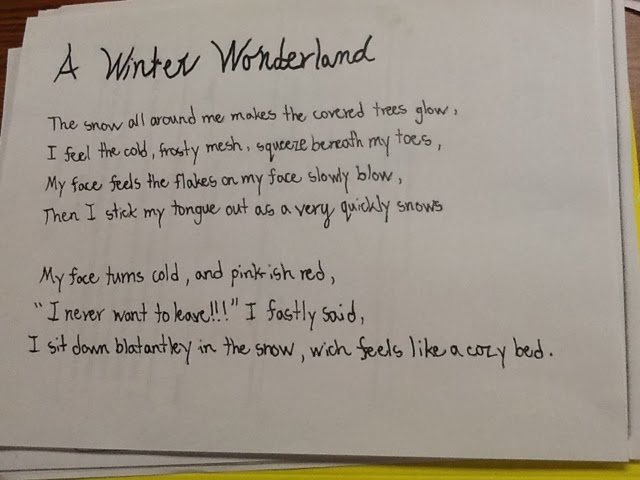 A Winter Wonderland
The snow all around me makes the covered trees glow,
I feel the cold, frosty mesh, squeeze beneath my toes,
My face feels the flakes on my face slowly blow,
Then I stick my tongue out as a very quickly snows
My face turns cold, and pinkish red,
"I never want to leave!!!" I fastly said,
I sit down blatantley in the snow, wich feels like a cozy bed.